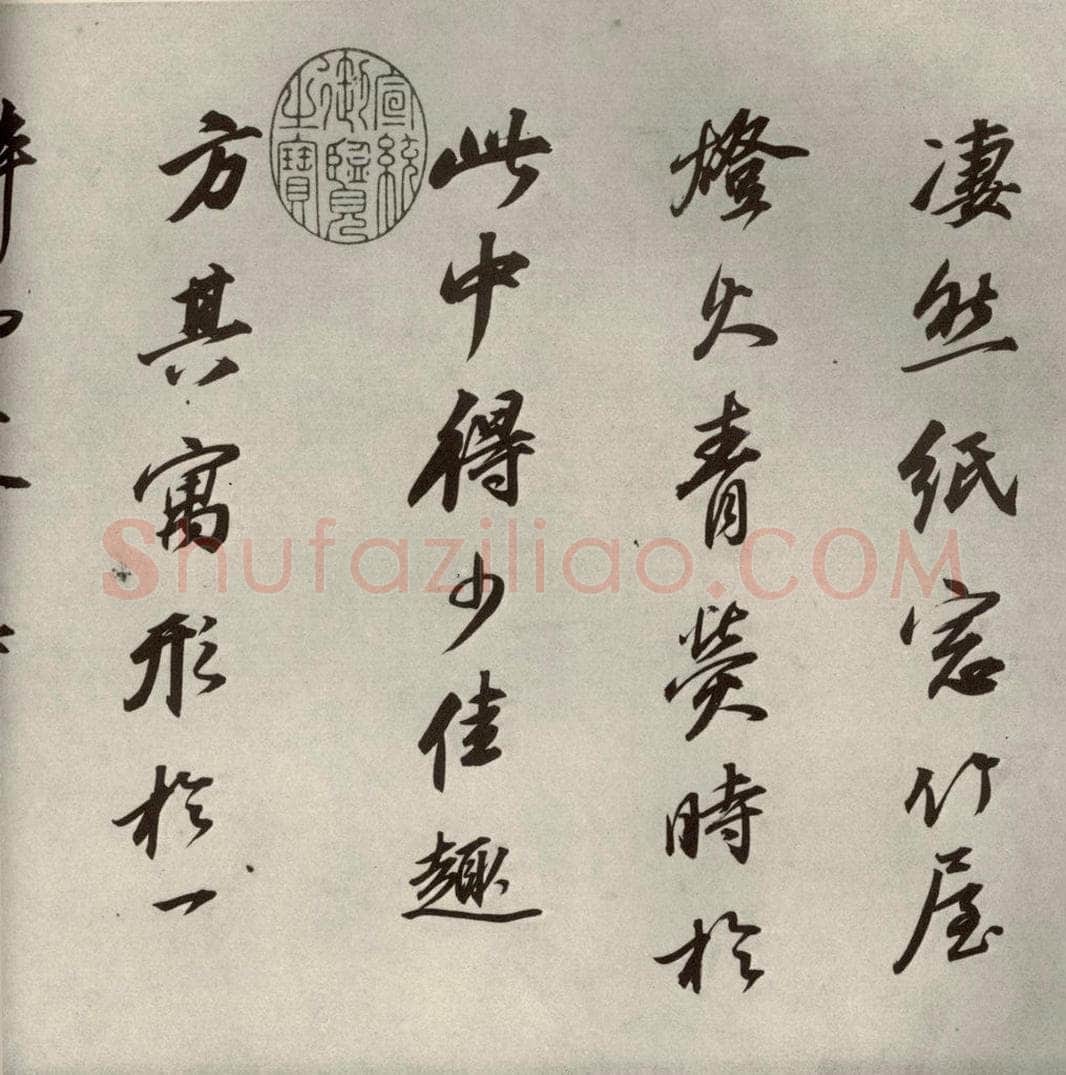 凄然紙窓竹屋
燈火青熒時於
此中得少佳趣
方其寓形於一
宣統御覽之寶
Shufaziliao.COM